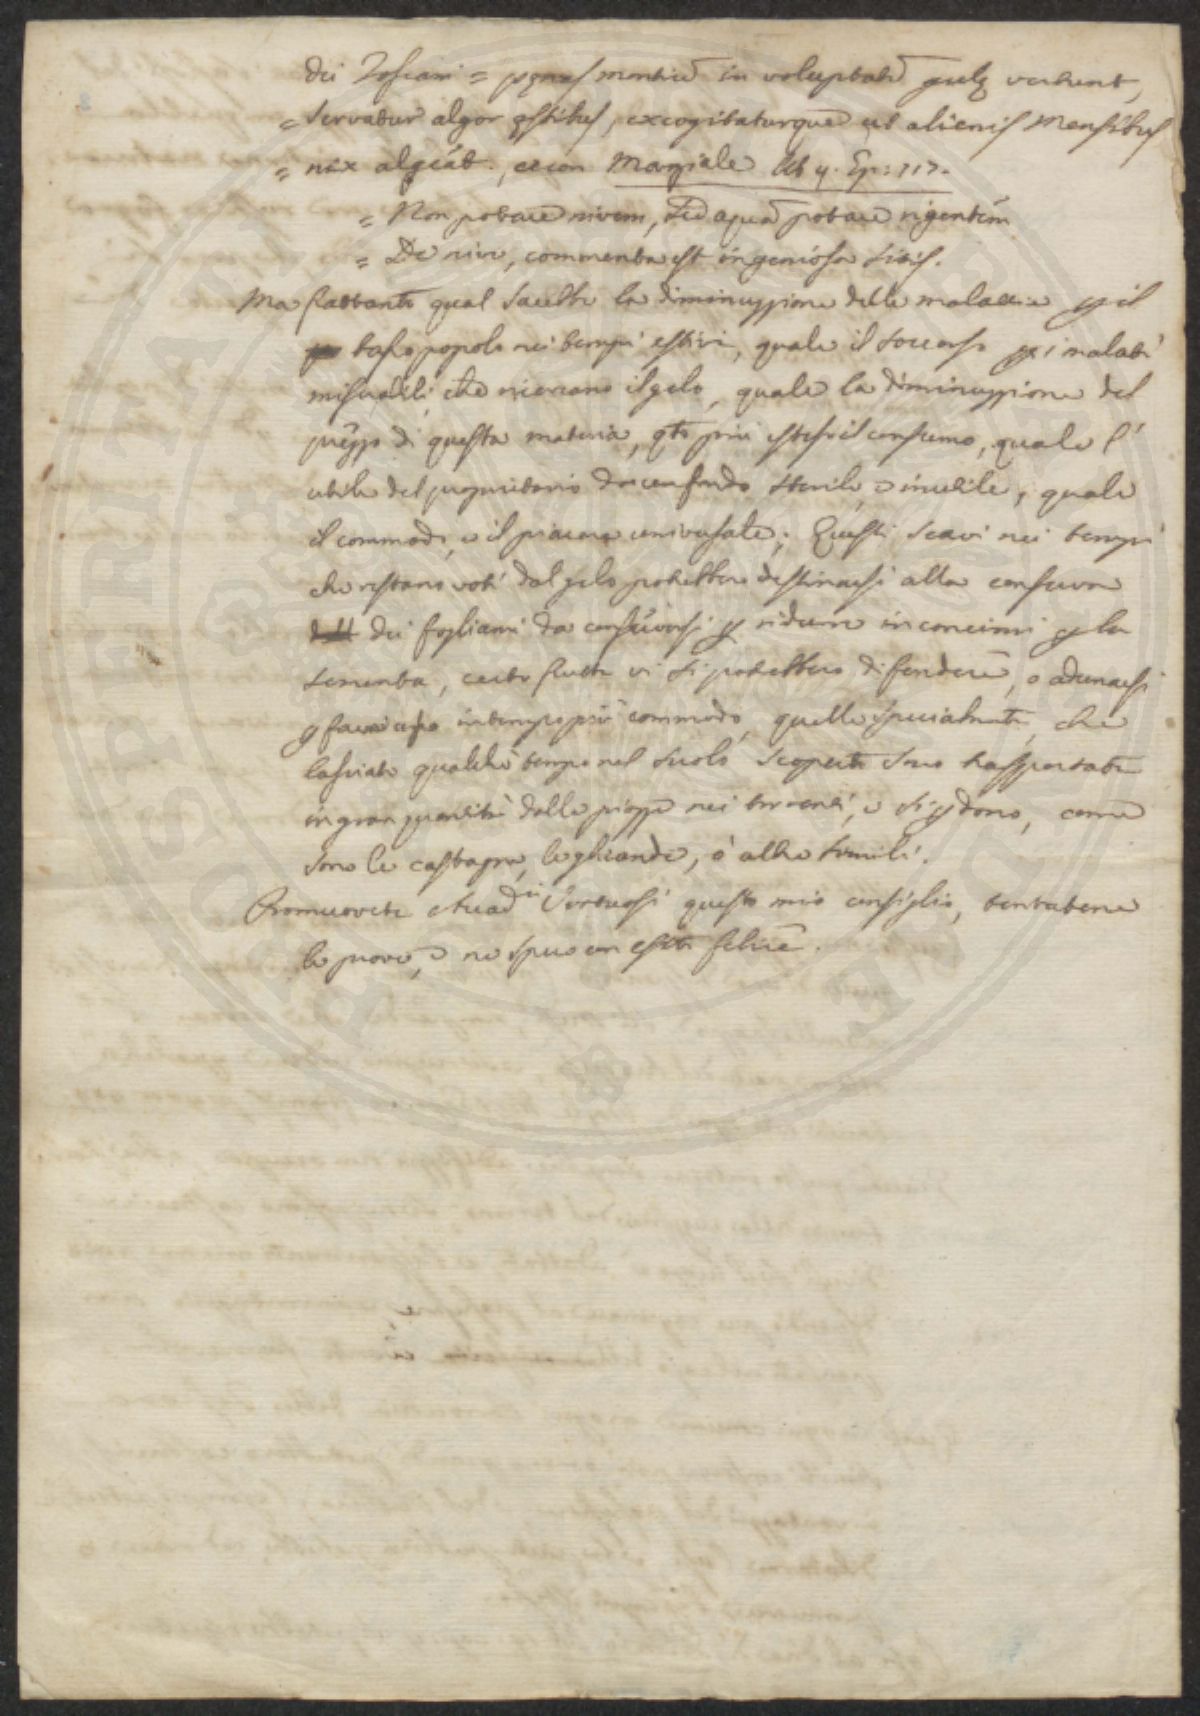 dei Toscani = pęnas montiū in voluptatē gulę vertunt,
= servatur algor ęstibus, excogitaturque ut alienis Mensibus
= nix algeat., e con Marziale lib. Ep: 117.
= Non potare nivem, sed aquā potare rigentem
= De nive, commenta est ingeniosa sitis.
Ma frattanto qual sarebbe la diminuzzione delle malattie p il
basso popolo nei tempi estivi, quale il soccorso p i malati
miserabili, che ricercano il gelo, quale la diminuzzione del
prezzo di questa materia, qto più estesi il consumo, quale l'
utile del proprietario da un fondo sterile, o inutile, quale
il commodo, e il piacere universale; Questi scavi nei tempi
che restano voti dal gelo potrebbero destinarsi alla conserva
dei fogliami da conservarsi p ridurre in concimi p la
sementa, certe frutte vi si potrebbero difendere, o adunarsi
p farne uso in tempo più commodo, quelle specialmente, che
lasciate qualche tempo nel suolo scoperte sono trasportate
in gran quantità dalle piogge nei torrenti, e si pdono, come
sono le castagne, le ghiande, o altre simili.
Promuovete Accad.ci Virtuosi questo mio consiglio, tentatene
le prove, e ne spero un esito felice.